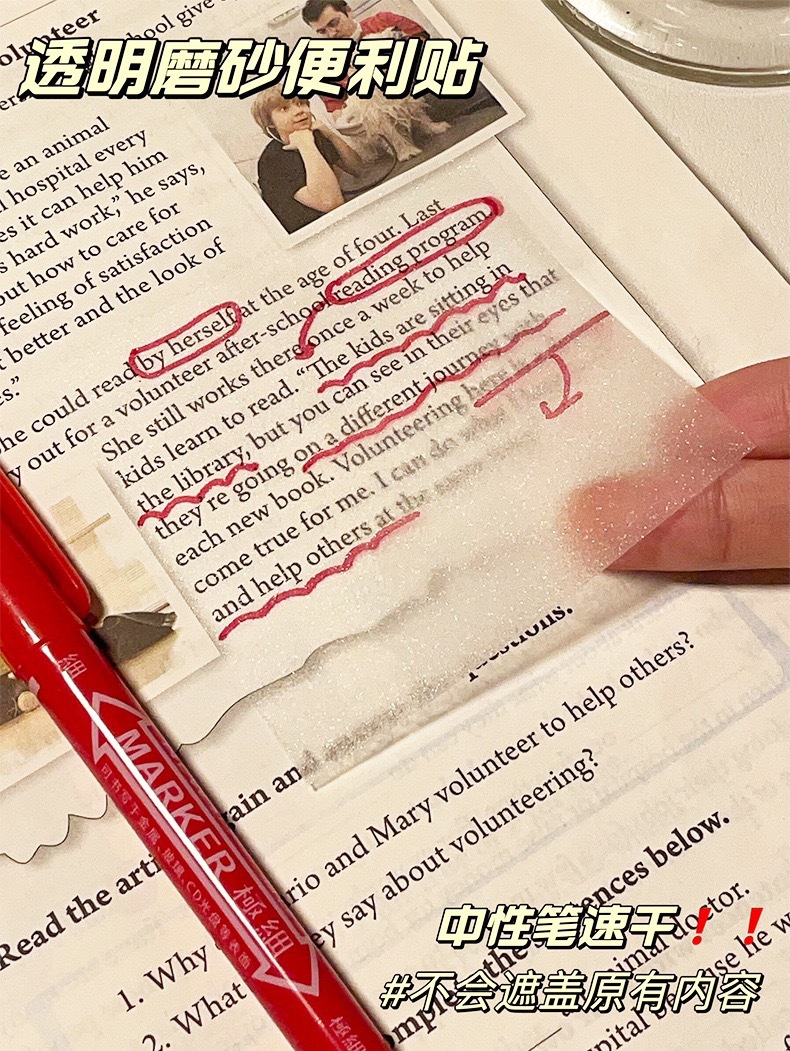 透明磨砂便利贴
olunteer
chool give
e an animal
l hospital every
es it can help him
s hard work," he says,
out how to care for
feeling of satisfaction
t better and the look of
es."
at the age of four. Last
by herself
he could read
y out for a volunteer after-school reading program.
She still works there once a week to help
kids learn to read. "The kids are sitting in
the library, but you can see in their eyes that
they're going on a different journey with
each new book. Volunteering here is
come true for me. I can do what I
and help others at the same
estions.
ain an
Read the arti
1. Why
rio and Mary volunteer to help others?
2. What
ey say about volunteering?
mpl
the
ences below.
animal doctor.
pital
se he w
細
MARKER 極細
可书写于金属、玻璃、CD光盘等表面
極細
中性笔速干❗❗
#不会遮盖原有内容